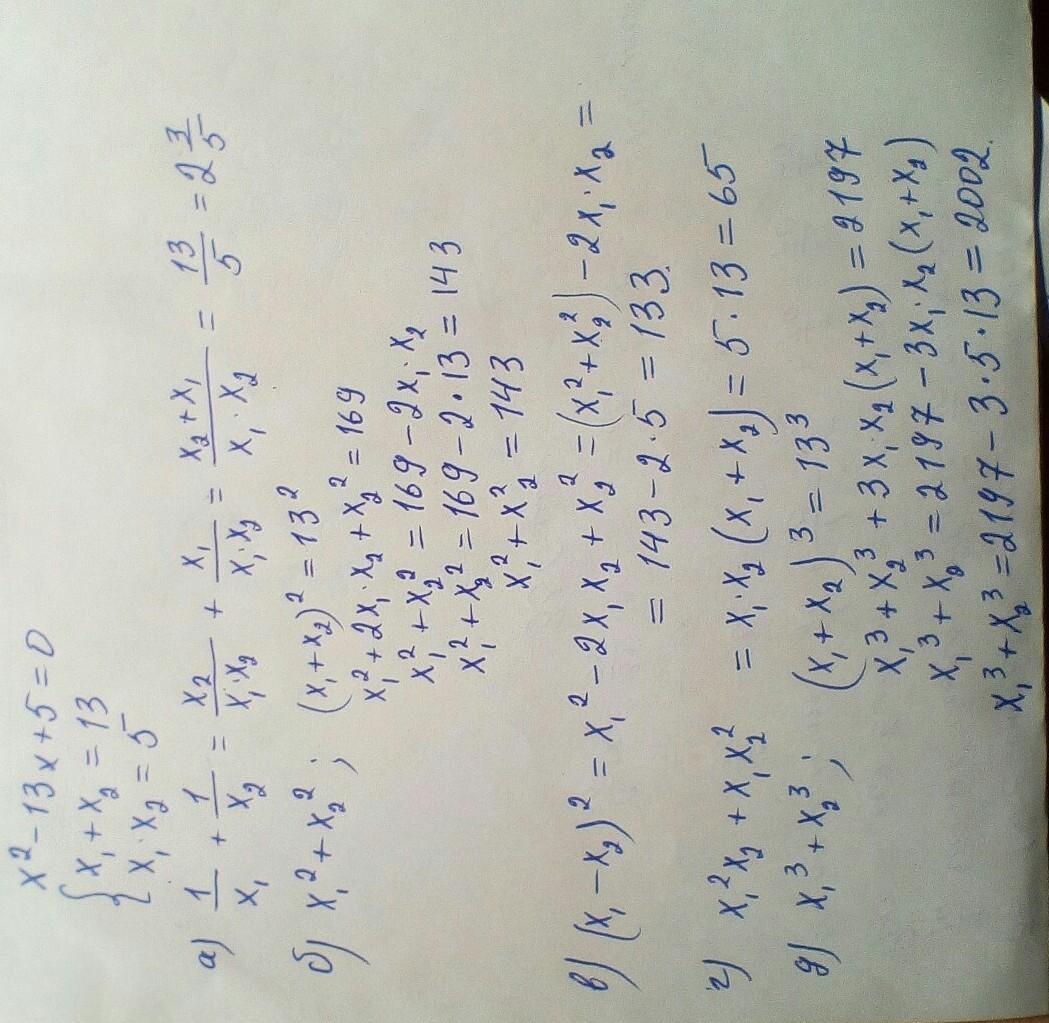 x² - 13x + 5 = 0
{ x₁ + x₂ = 13
{ x₁ · x₂ = 5
а) 1/x₁ + 1/x₂ = x₂/(x₁·x₂) + x₁/(x₁·x₂) = (x₂ + x₁)/(x₁ · x₂) = 13/5 = 2 3/5
б) x₁² + x₂² ; (x₁ + x₂)² = 13²
x₁² + 2x₁·x₂ + x₂² = 169
x₁² + x₂² = 169 - 2x₁·x₂
x₁² + x₂² = 169 - 2·13 = 143
x₁² + x₂² = 143
в) (x₁ - x₂)² = x₁² - 2x₁x₂ + x₂² = (x₁² + x₂²) - 2x₁·x₂ =
= 143 - 2·5 = 133.
г) x₁²x₂ + x₁x₂² = x₁·x₂ (x₁ + x₂) = 5·13 = 65
д) x₁³ + x₂³ ; (x₁ + x₂)³ = 13³
x₁³ + x₂³ + 3x₁x₂ (x₁ + x₂) = 2197
x₁³ + x₂³ = 2197 - 3x₁·x₂ (x₁ + x₂)
x₁³ + x₂³ = 2197 - 3·5·13 = 2002.